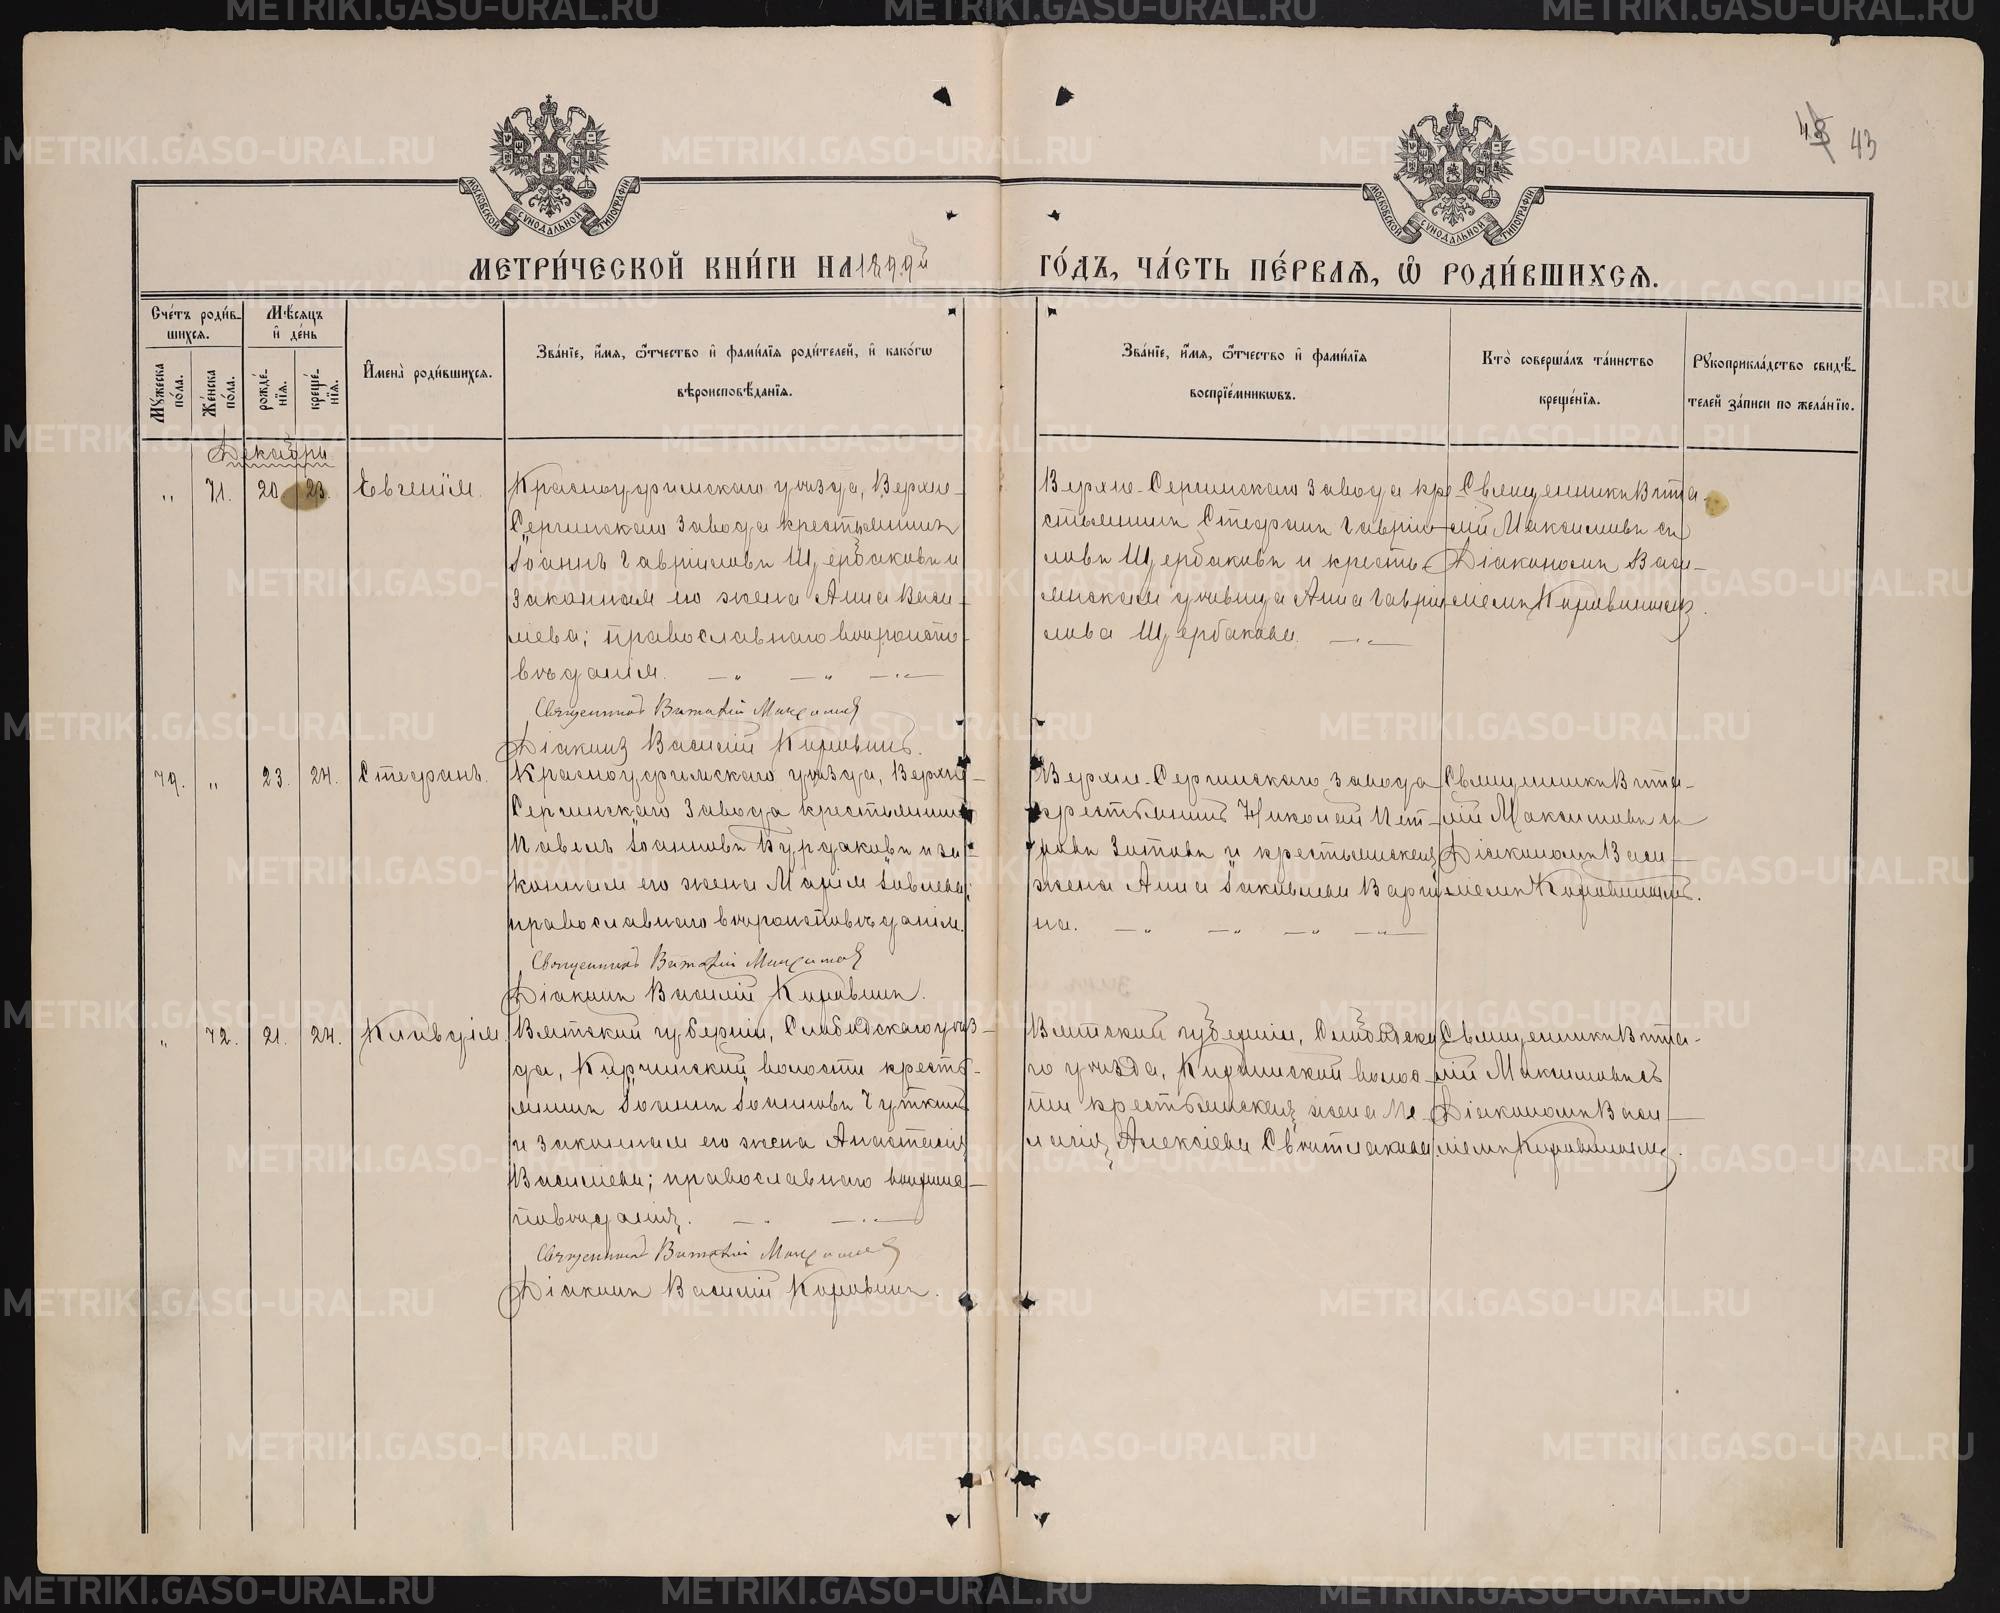 43 43
МОСКОВСКОЙ СѴНОДАЛЬНОЙ ТИПОГРАФІИ
МОСКОВСКОЙ СѴНОДАЛЬНОЙ ТИПОГРАФІИ
МЕТРИ́ЧЕСКОЙ КНИ́ГИ НА 1899й ГО́ДЪ, ЧА́СТЬ ПЕ́РВАѦ, Ѡ҆ РОДИ́ВШИХСѦ.
Сче́тъ роди́в-
шихсѧ.
Мꙋ́жеска по́ла.
Же́нска по́ла.
Мѣ́сѧцъ
и҆ де́нь
рожде́-
нїѧ.
креще́-
нїѧ.
И҆мена̀ роди́вшихсѧ.
Зва́нїе, и҆́мѧ, ѻ҆́тчество и҆ фами́лїѧ роди́телей, и҆ како́гѡ
вѣроисповѣ́данїѧ.
Зва́нїе, и҆́мѧ, ѻ҆́тчество и҆ фами́лїѧ
воспрїе́мникѡвъ.
Кто̀ соверша́лъ та́инство
креще́нїѧ.
Рꙋкоприкла́дство свидѣ́-
телей за́писи по жела́нїю.
Декабрь
„ 71. 20. 23. Евгенія.
Красноуфимскаго уѣзда, Верхне-
Сергинскаго завода крестьянинъ
Іоаннъ Гавріиловъ Щербаковъ и
законная его жена Анна Васи-
ліева; православнаго вѣроиспо-
вѣданія.
Священникъ Виталій Максимовъ
Діаконъ Василій Коровинъ.
Верхне-Сергинскаго завода кре-
стьянинъ Стефанъ Гавріи-
ловъ Щербаковъ и кресть-
янская дѣвица Анна Гаврі-
лова Щербакова.
Священникъ Вита-
лій Максимовъ съ
Діакономъ Васи-
ліемъ Коровинымъ.
79. „ 23. 24. Стефанъ.
Красноуфимскаго уѣзда, Верхне-
Сергинскаго завода крестьянинъ
Павелъ Іоанновъ Бурдаковъ и за-
конная его жена Марія Іовлева;
православнаго вѣроисповѣданія.
Священникъ Виталій Максимовъ
Діаконъ Василій Коровинъ.
Верхне-Сергинскаго завода
крестьянинъ Николай Пет-
ровъ Зотовъ и крестьянская
жена Анна Іаковлева Варги-
на.
Священникъ Вита-
лій Максимовъ съ
Діакономъ Васи-
ліемъ Коровинымъ.
„ 72. 21. 24. Клавдія
Вятской губерніи, Слободскаго уѣз-
да, Кирчинской волости кресть-
янинъ Іоаннъ Іоанновъ Чуткинъ
и законная его жена Анастасія
Василіева; православнаго вѣроис-
повѣданія.
Священникъ Виталій Максимовъ
Діаконъ Василій Коровинъ.
Вятской губерніи, Слободска-
го уѣзда, волос-
ти крестьянская жена Ме-
лагія Алексіева Свѣтлакова
Священникъ Вита-
лій Максимовъ съ
Діакономъ Васи-
ліемъ Коровинымъ.
METRIKI.GASO-URAL.RU